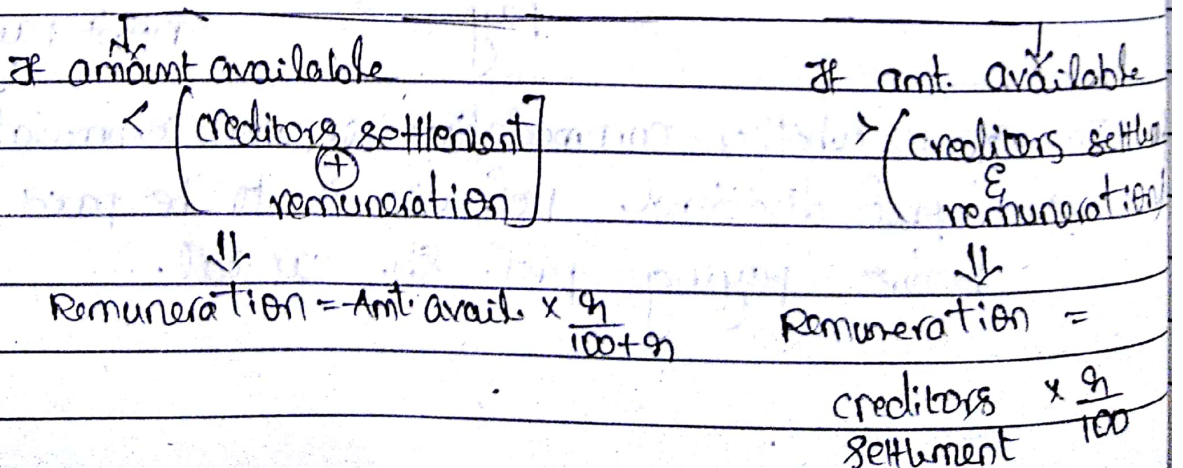 If amount available
< [creditors settlement
+
remuneration]
⇓
Remuneration = Amt. avail. × r/100+r
If amt. available
> (creditors settlem
&
remuneration
⇓
Remuneration =
creditors settlement × r/100